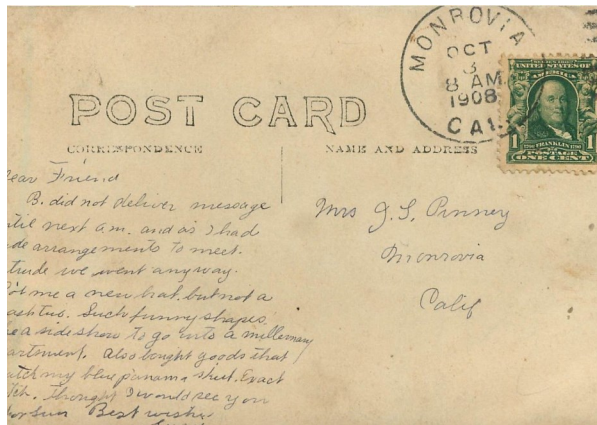 MONROVIA
OCT
3
8 AM
1908
CAL.
UNITED STATES OF
AMERICA
1 FRANKLIN 1
POSTAGE
ONE CENT
POST CARD
CORRESPONDENCE
NAME AND ADDRESS
ear Friend
B. did not deliver message
til next a.m. and as I had
de arrangements to meet.
trude we went anyway.
me a new hat, but not a
Such funny shapes.
a side show to go into a millenary
artment. Also bought goods that
atch my blue panama skirt. Exact
tch. Thought I would see you
Best wishes
Mrs J. S. Pinney
Monrovia
Calif